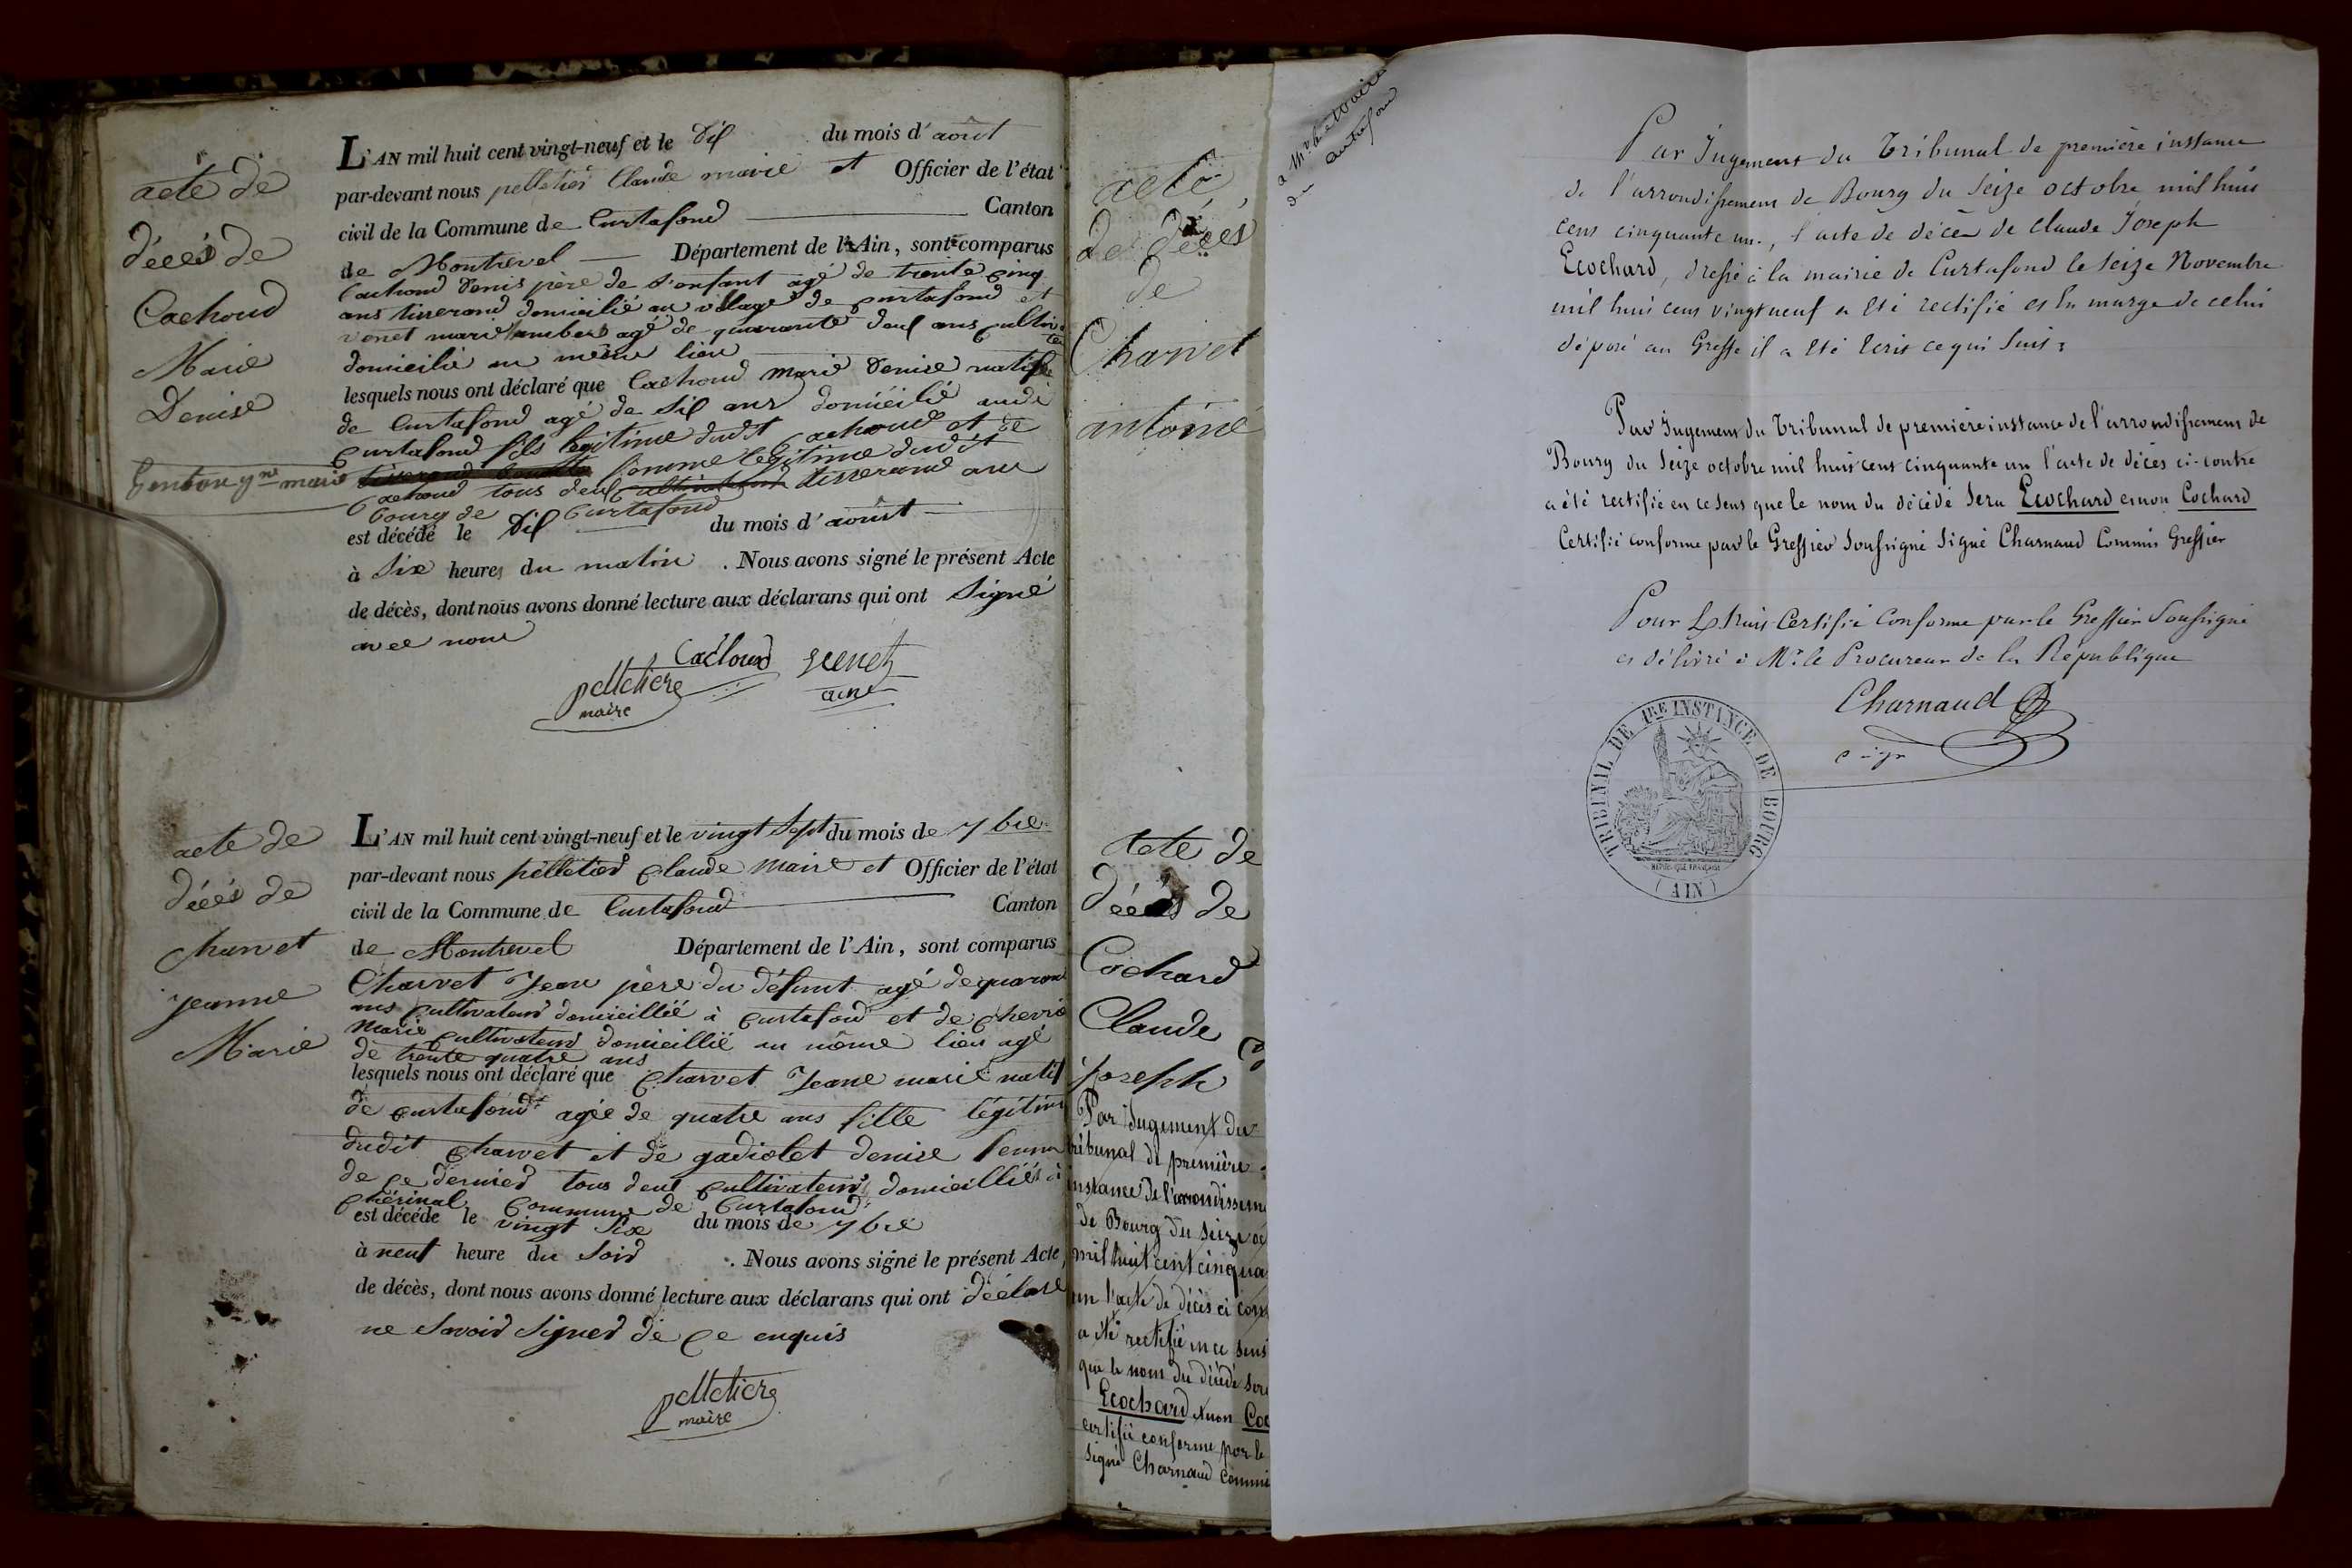 acte de
décés de
Cachoud
Marie
Denise
L'AN mil huit cent vingt-neuf et le Dix du mois d'août
par-devant nous pelletier Claude marie et Officier de l'état
civil de la Commune de Curtafond Canton
de Montrevel Département de l'Ain, sont comparus
Cachoud Denis père de l'enfant agé de trente cinq
ans tisserand domicilié au village de curtafond et
venet marie agé de quarante deux ans
domicilié au même lieu
lesquels nous ont déclaré que Cachoud marie Denise native
de Curtafond agé de Six ans domicilié audi
Curtafond fils légitime dudit Cachoud et de
femme légitime dudit
Cachoud tous deux tisserand au
bourg de Curtafond
est décédé le Dix du mois d'août
à Six heures du matin . Nous avons signé le présent Acte
de décès, dont nous avons donné lecture aux déclarans qui ont Signé
avec nous
Cachoud venet
pelletier ainé
maire
acte de
décés de
charvet
jeanne
Marie
L'AN mil huit cent vingt-neuf et le vingt Sept du mois de 7bre
par-devant nous pelletier Claude Maire et Officier de l'état
civil de la Commune de Curtafond Canton
de Montrevel Département de l'Ain, sont comparus
Charvet Jean père du défunt agé de
ans cultivateur domicillié à Curtafond et de
Marie cultivateur domicillié au même lieu agé
de trente quatre ans
lesquels nous ont déclaré que Charvet Jeane marie natif
de curtafond agée de quatre ans fille légitim
dudit Charvet et de gadiolet denise femm
de ce dernier tous deux cultivateurs domicilliés à
commune de Curtafond
est décédé le vingt Six du mois de 7bre
à neuf heure du Soir . Nous avons signé le présent Acte
de décès, dont nous avons donné lecture aux déclarans qui ont déclaré
ne Savoir Signer de ce enquis
pelletier
maire
acte
de décés
de
Charvet
antoine
Acte de
décés de
Cochard
Claude
Joseph
Par Jugement du
tribunal de première
instance de l'arrondissem
de Bourg du Seize oc
mil huit cent cinqua
un l'acte de décès ci con
a été rectifié en ce sens
que le nom du décédé sera
Ecochard et non Coc
certifié conforme par le
signé Charnaud Commi
Par Jugement du Tribunal de première instance
de l'arrondissement de Bourg du Seize octobre mil huit
cent cinquante un, l'acte de décès de Claude Joseph
Ecochard, dressé à la mairie de Curtafond le seize Novembre
mil huit cent vingt neuf a été rectifié et en marge de celui
déposé au Greffe il a été écrit ce qui Suit:
Par Jugement du Tribunal de première instance de l'arrondissement de
Bourg du Seize octobre mil huit cent cinquante un l'acte de décès ci-contre
a été rectifié en ce sens que le nom du décédé Sera Ecochard et non Cochard
Certifié conforme par le Greffier Soussigné Signé Charnaud Commis Greffier
Pour Extrait Certifié Conforme par le Greffier Soussigné
et délivré à Mr. le Procureur de la République
Charnaud
TRIBUNAL DE 1RE INSTANCE DE BOURG
RÉPUBLIQUE FRANÇAISE
(AIN)